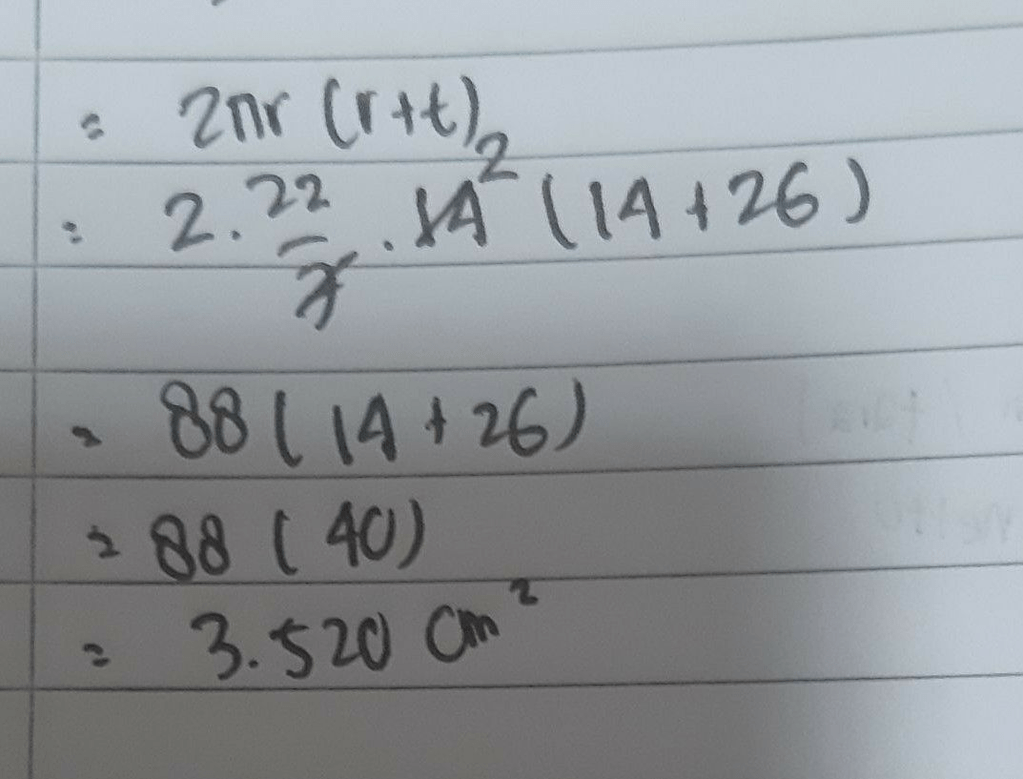 = 2πr (r+t)
= 2. 22/7 . 14² (14+26)
= 88 (14+26)
= 88 (40)
= 3.520 cm²